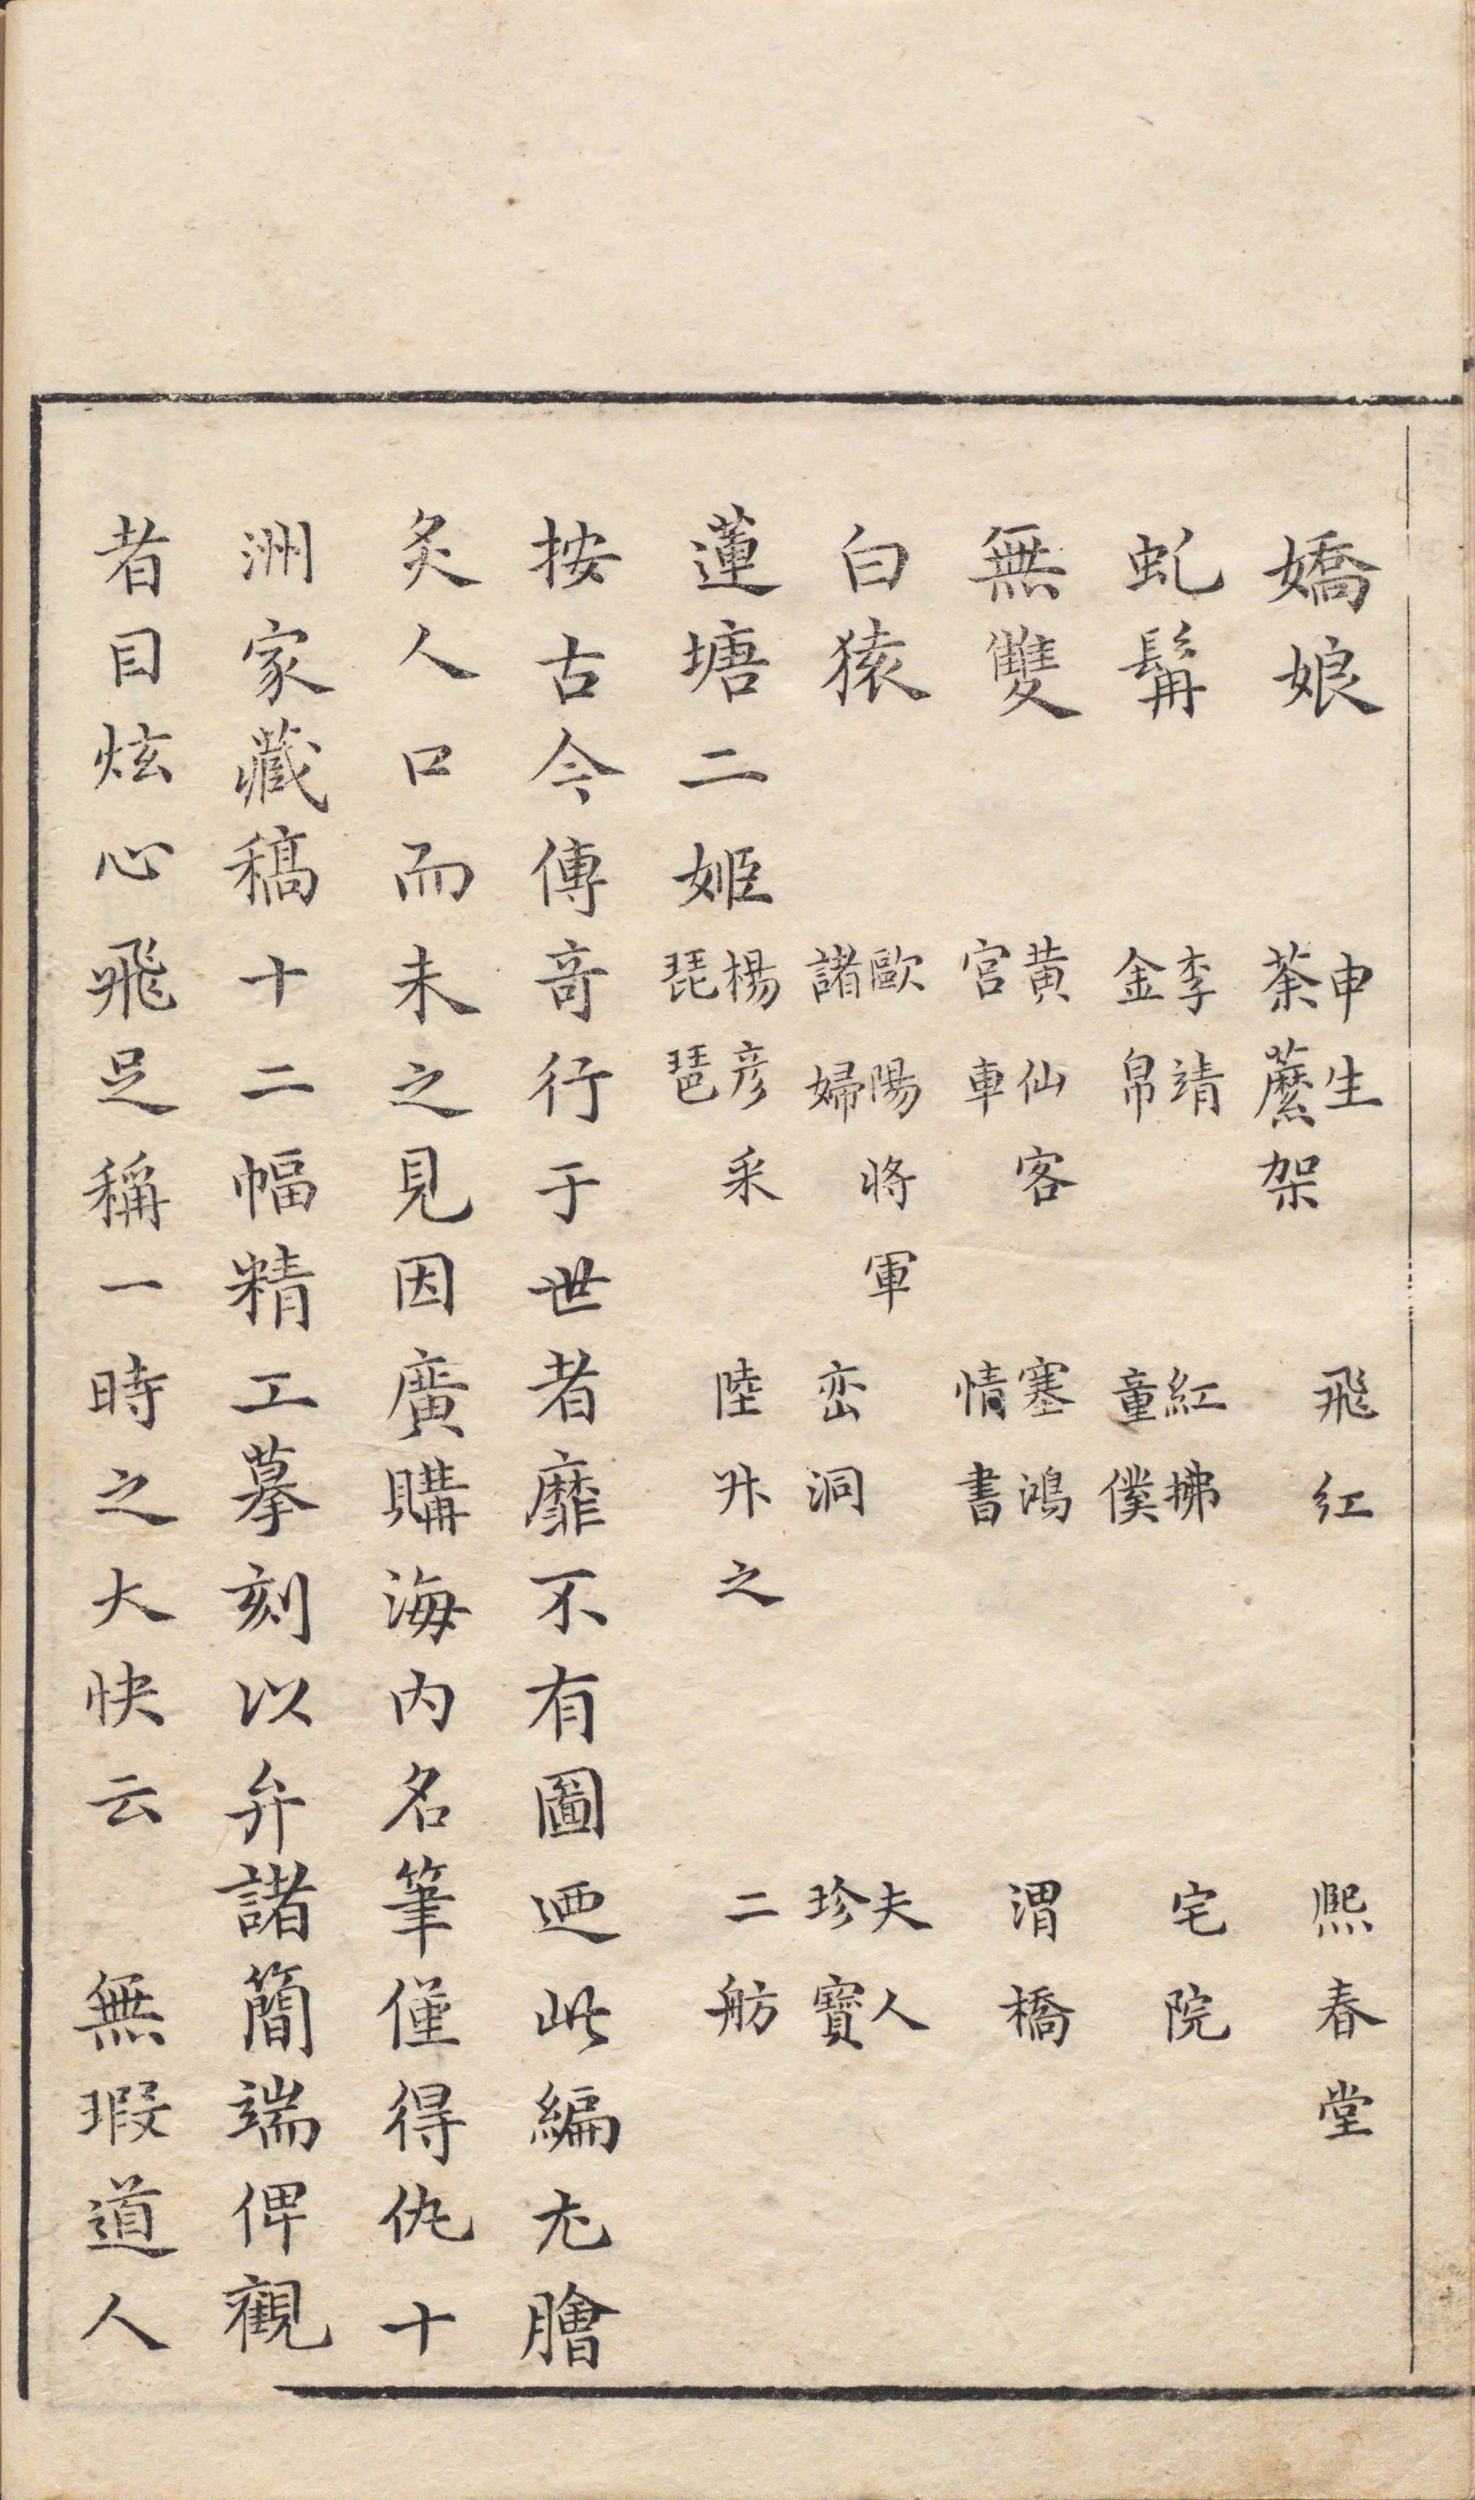 嬌娘 申生 荼蘼架 飛紅 熙春堂
虬髯 李靖 金帛 紅拂 童僕 宅院
無雙 黃仙客 宮車 塞鴻 情書 渭橋
白猿 歐陽將軍 諸婦 峦洞 夫人 珍寶
蓮塘二姬 楊彥采 琵琶 陸升之 二舫
按古今傳奇行于世者靡不有圖迺此編尤膾
炙人口而未之見因廣購海內名筆僅得仇十
洲家藏稿十二幅精工摹刻以弁諸簡端俾觀
者目炫心飛足稱一時之大快云 無瑕道人